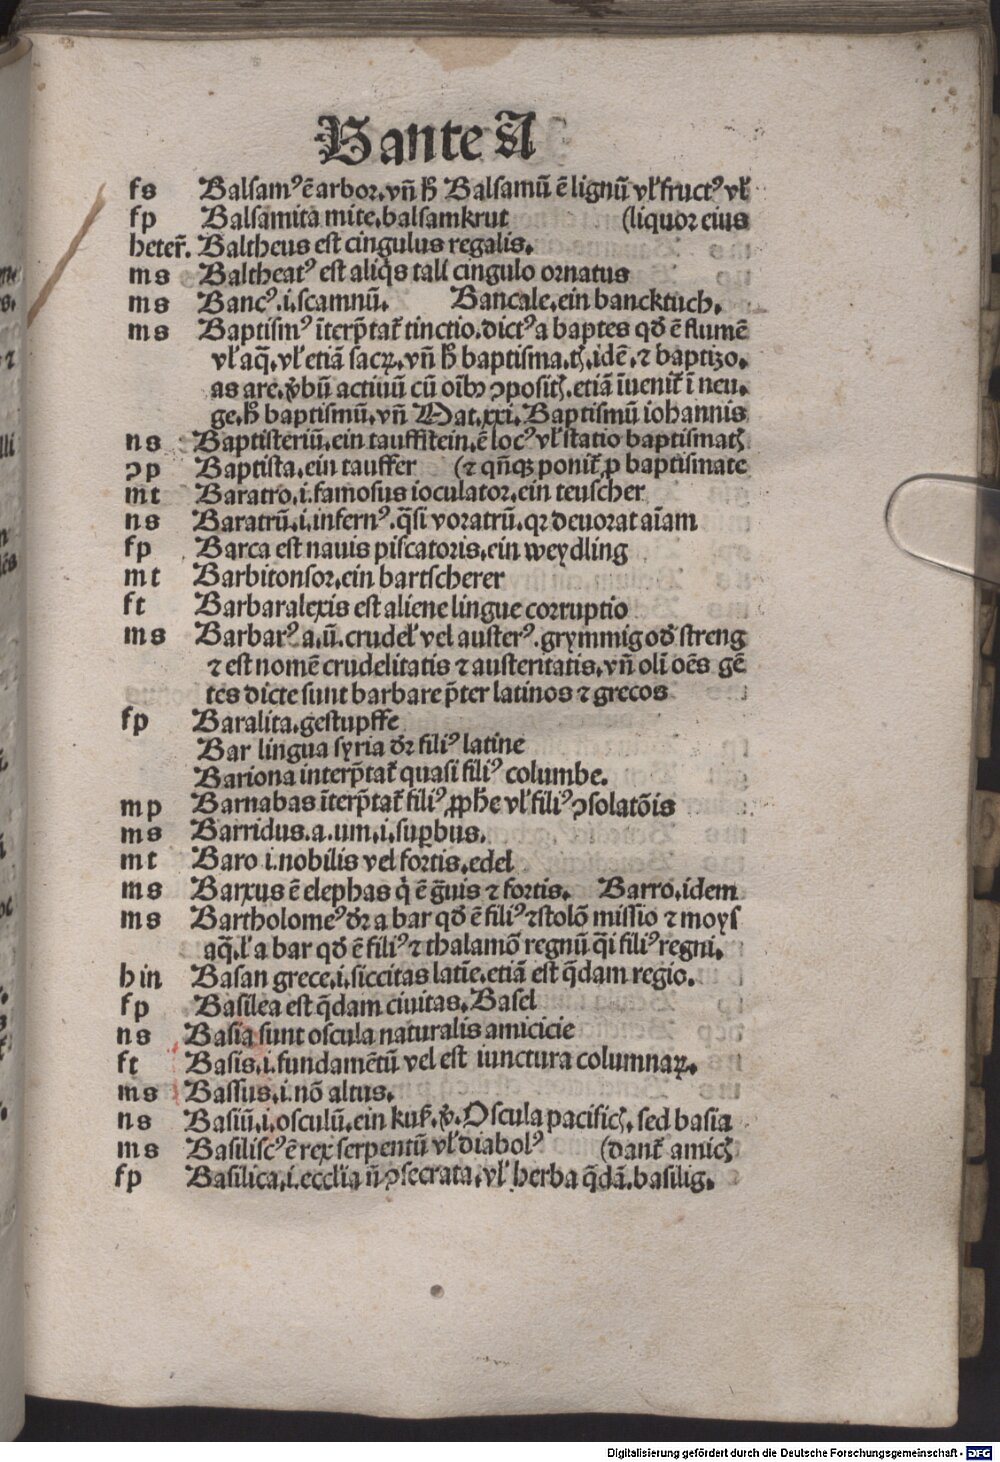 B ante A
fs Balsamꝰ ē arbor. vñ ħ Balsamū ē lignū vł fructꝰ vł
fp Balsamita mite. balsamkrut (liquor eius
heter̄. Baltheus est cingulus regalis.
ms Baltheatꝰ est aliqs tali cingulo ornatus
ms Bancꝰ. i. scamnū. Bancale. ein bancktuch.
ms Baptismꝰ īterp̄tat᷑ tinctio. dictꝰ a baptes qd̄ ē flumē
vł aq̄. vł etiā sacꝝ. vñ ħ baptisma. tꝫ. idē. ⁊ baptizo.
as are. v̄bū actiuū cū oībꝫ ꝯpositꝫ. etiā īuenit᷑ ī neu.
ge. ħ baptismū. vñ Mat. xxi. Baptismū iohannis
ns Baptisteriū. ein tauffstein. ē locꝰ vł statio baptismatꝫ
ꝯp Baptista. ein tauffer (⁊ qn̄qꝫ ponit᷑ ꝑ baptismate
mt Baratro. i. famosus ioculator. ein teuscher
ns Baratrū. i. infernꝰ. q̄si voratrū. qꝛ deuorat aīam
fp Barca est nauis piscatoris. ein weydling
mt Barbitonsor. ein bartscherer
ft Barbaralexis est aliene lingue corruptio
ms Barbarꝰ a. ū. crudeł vel austerꝰ. grymmig od̄ streng
⁊ est nomē crudelitatis ⁊ austeritatis. vñ oli oēs gē
tes dicte sunt barbare p̄ter latinos ⁊ grecos
fp Baralita. gestupffe
Bar lingua syria dr̄ filiꝰ latine
Bariona interp̄tat᷑ quasi filiꝰ columbe.
mp Barnabas īterp̄tat᷑ filiꝰ ꝓphe vł filiꝰ ꝯsolatōis
ms Barridus. a. um. i. suꝑbus.
mt Baro i. nobilis vel fortis. edel
ms Barxus ē elephas q̇ ē ḡuis ⁊ fortis. Barro. idem
ms Bartholomeꝰ dr̄ a bar qd̄ ē filiꝰ ⁊ stolō missio ⁊ moys
aq̄. ł a bar qd̄ ē filiꝰ ⁊ thalamō regnū q̄i filiꝰ regni.
h in Basan grece. i. siccitas latīe. etiā est q̄dam regio.
fp Basilea est q̄dam ciuitas. Basel
ns Basia sunt oscula naturalis amicicie
ft Basis. i. fundamētū vel est iunctura columnaꝝ.
ms Bassus. i. nō altus.
ns Basiū. i. osculū. ein kuß. v̄. Oscula pacificꝫ. sed basia
ms Basiliscꝰ ē rex serpentū vł diabolꝰ (dant᷑ amicꝫ
fp Basilica. i. ecclīa n̄ ꝯsecrata. vł herba q̄dā. basilig.
Digitalisierung gefördert durch die Deutsche Forschungsgemeinschaft - DFG